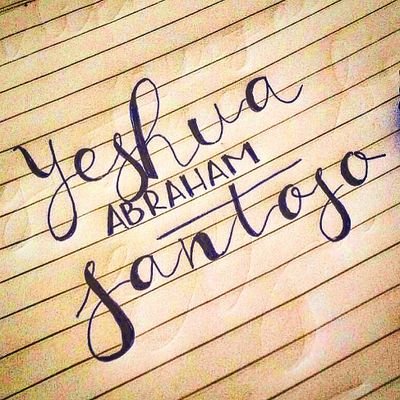 Yeshua
ABRAHAM
Santoso